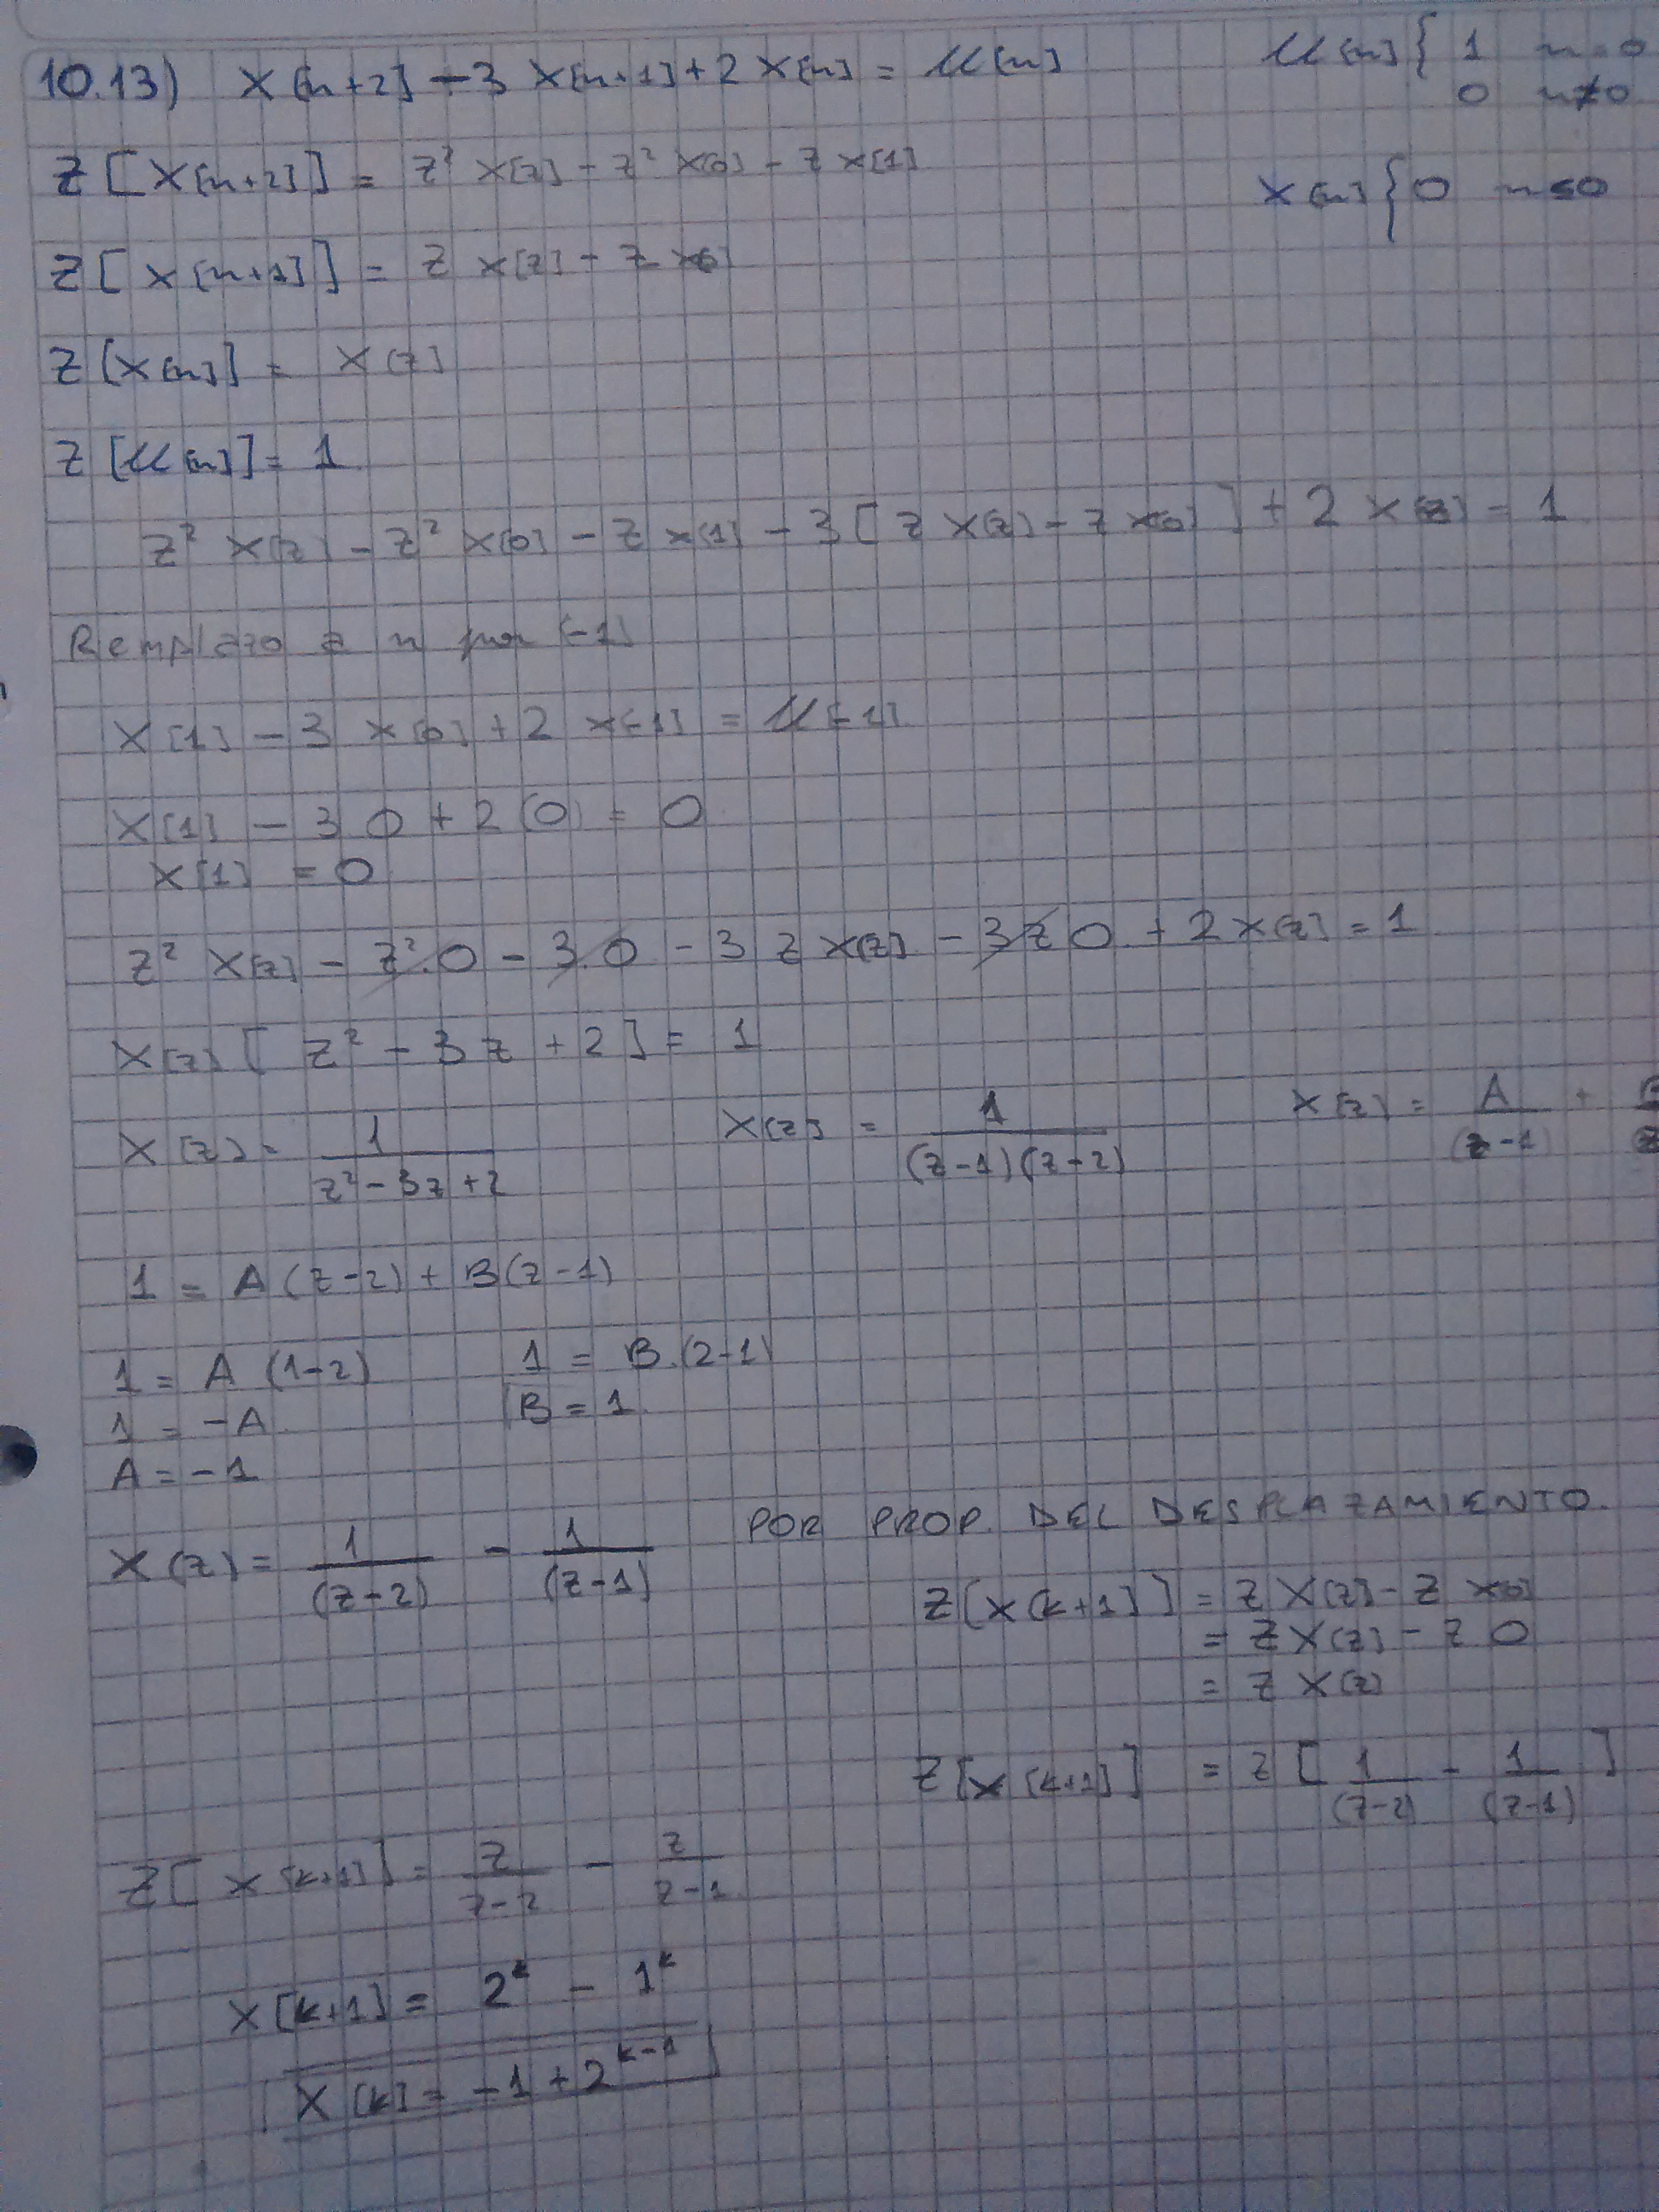 10.13) X[n+2] - 3 X[n+1] + 2 X[n] = u[n]   u[n] { 1 n=0
0 n≠0
Z[X[n+2]] = z² X[z] - z² X[0] - z X[1]   X[n] { 0 n≤0
Z[X[n+1]] = z X[z] - z X[0]
Z[X[n]] = X[z]
Z[u[n]] = 1
z² X[z] - z² X[0] - z X[1] - 3 [z X[z] - z X[0]] + 2 X[z] = 1
Remplazo a n por [-1]
X[1] - 3 X[0] + 2 X[-1] = u[-1]
X[1] - 3 0 + 2 (0) = 0
X[1] = 0
z² X[z] - z².0 - 3.0 - 3 z X[z] - 3 z 0 + 2 X[z] = 1
X[z] [z² - 3z + 2] = 1
X[z] = 1/(z² - 3z + 2)   X[z] = 1/((z-1)(z-2))   X[z] = A/(z-1) +
1 = A(z-2) + B(z-1)
1 = A (1-2)   1 = B.(2-1)
1 = -A   B = 1
A = -1
X(z) = 1/(z-2) - 1/(z-1)   POR PROP. DEL DESPLAZAMIENTO.
Z[X[k+1]] = z X[z] - z X[0]
= z X[z] - z 0
= z X[z]
Z[X[k+1]] = z [1/(z-2) - 1/(z-1)]
Z[X[k+1]] = z/(z-2) - z/(z-1)
X[k+1] = 2^k - 1^k
X[k] = -1 + 2^(k-1)